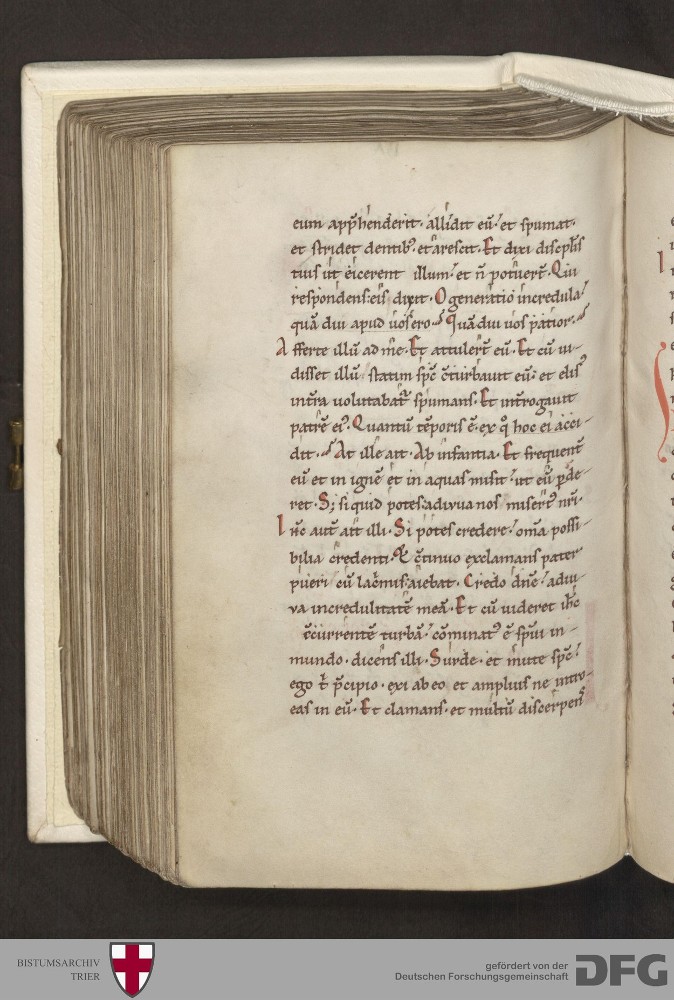 eum app̃henderit · allidit eũ · et spumat ·
et stridet dentib᷒ · et arescit · Et dixi discipl̃is
tuis ut eicerent illum · et ñ potuer̃t · Qui
respondens eis dixit · O generatio incredula ·
quã diu apud uos ero · Quã diu uos patior ·
Afferte illũ ad me · Et attuler̃t eũ · Et cũ ui-
disset illũ · statim sp̃c c̃turbauit eũ · et elis᷒
int̃ra uolutabat᷒ spumans · Et int̃rogauit
patrẽ ei᷒ · Quantũ tẽporis ẽ · ex q̊ hoc ei acci-
dit · At ille ait · Ab infantia · Et frequent̃
eũ et in ignẽ et in aquas misit · ut eũ ꝑde-
ret · S; si quid potes · adiuua nos misert᷒ nr̃i ·
Ih̃c aut̃ ait illi · Si potes credere · om̃a possi-
bilia credenti · & c̃tinuo exclamans pater
pueri cũ lac̃mis · aiebat · Credo dñe · adiu-
ua incredulitatẽ meã · Et cũ uideret ih̃c
c̃currentẽ turbã · cõminat᷒ ẽ spũi in-
mundo · dicens illi · Surde · et mute sp̃c ·
ego t̃ p̃cipio · exi ab eo et amplius ne intro-
eas in eũ · Et clamans · et multũ discerpens
BISTUMSARCHIV
TRIER
gefördert von der
Deutschen Forschungsgemeinschaft
DFG